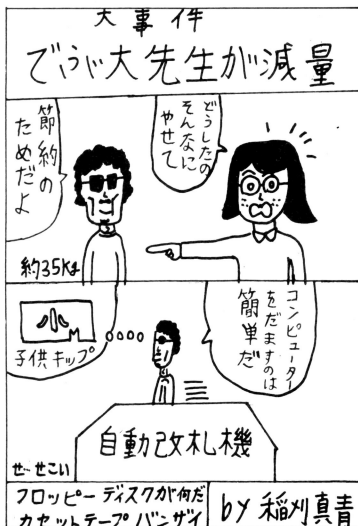 大事件
でぃぶ大先生が減量
どうしたの
そんなに
やせて
節約の
ためだよ
約35Kg
コンピューター
をだますのは
簡単だ
小
子供キップ
自動改札機
せ、せこい
フロッピーディスクが何だ
カセットテープバンザイ
by 稲刈真青